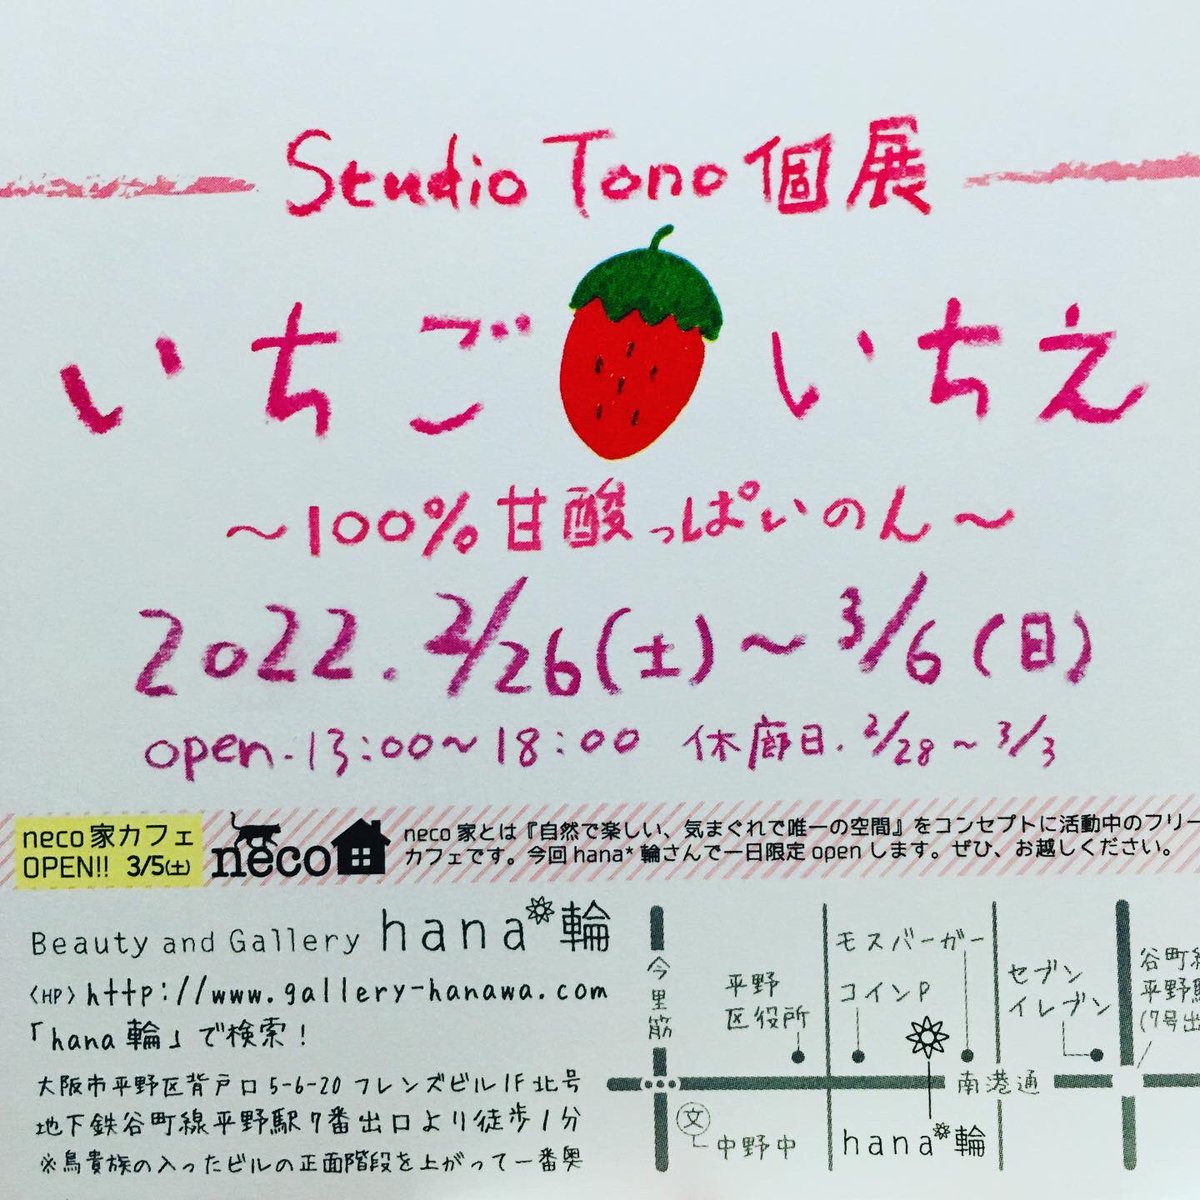 Studio Tono 個展
いちご いちえ
～100%甘酸っぱいのん～
2022. 2/26(土)～3/6(日)
open. 13:00～18:00 休廊日. 2/28～3/3
neco家カフェ
OPEN!! 3/5(土)
neco
neco家とは『自然で楽しい、気まぐれで唯一の空間』をコンセプトに活動中のフリー
カフェです。今回hana*輪さんで一日限定openします。ぜひ、お越しください。
Beauty and Gallery hana*輪
〈HP〉http://www.gallery-hanawa.com
「hana輪」で検索！
大阪市平野区背戸口5-6-20 フレンズビル1F北号
地下鉄谷町線平野駅7番出口より徒歩1分
※鳥貴族の入ったビルの正面階段を上がって一番奥
今里筋
平野
区役所
モスバーガー
コインP
セブン
イレブン
谷町線
平野駅
(7号出
南港通
文
中野中
hana*輪